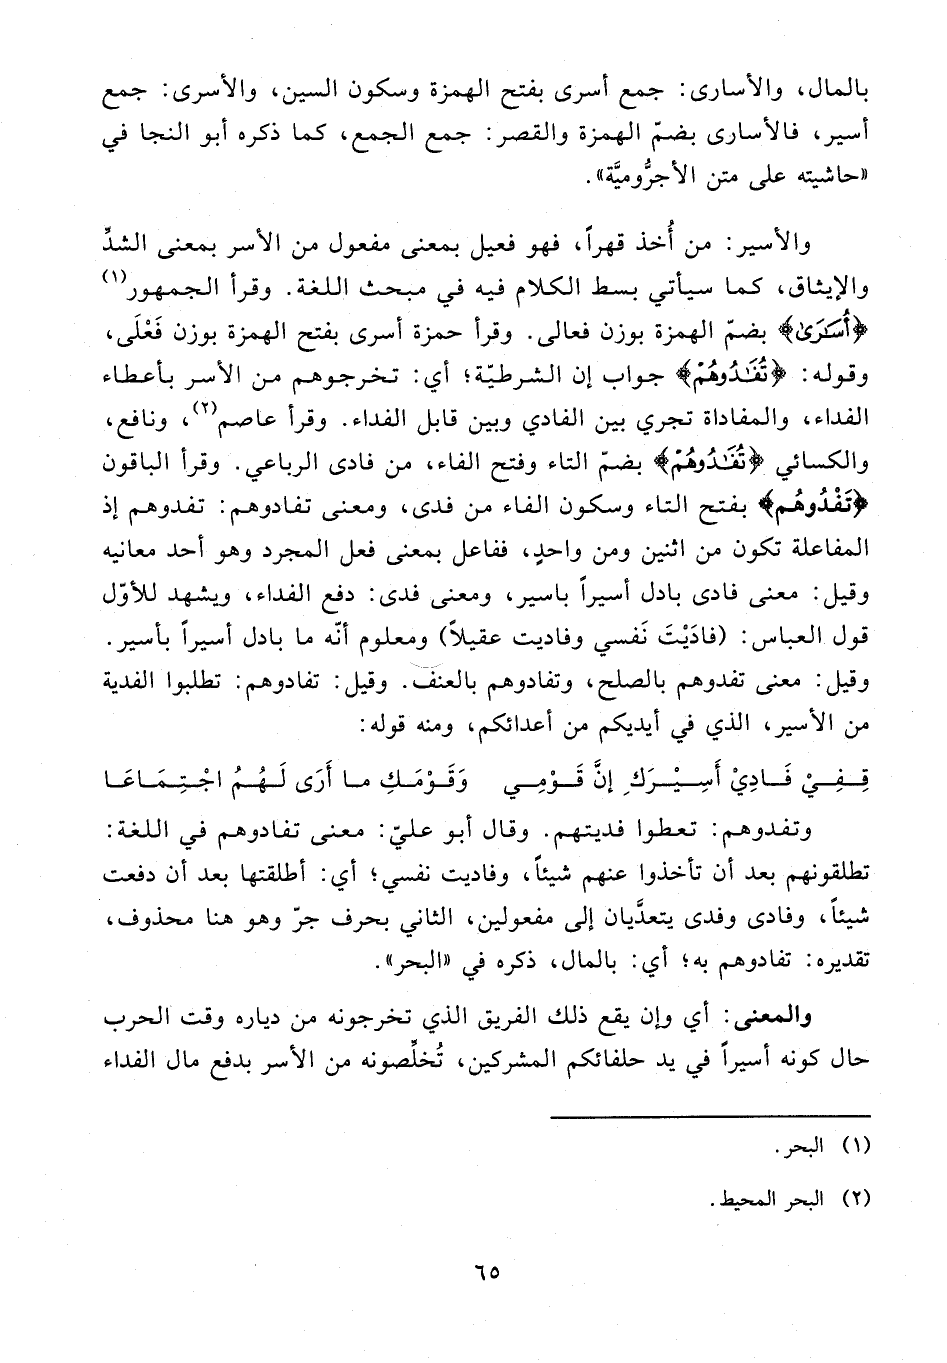 بالمال، والأسارى: جمع أسرى بفتح الهمزة وسكون السين، والأسرى: جمع
أسير، فالأسارى بضمّ الهمزة والقصر: جمع الجمع، كما ذكره أبو النجا في
«حاشيته على متن الأجرُّوميَّة».
والأسير: من أُخذ قهراً، فهو فعيل بمعنى مفعول من الأسر بمعنى الشدِّ
والإيثاق، كما سيأتي بسط الكلام فيه في مبحث اللغة. وقرأ الجمهور(١)
﴿أُسَٰرَىٰ﴾ بضمّ الهمزة بوزن فعالى. وقرأ حمزة أسرى بفتح الهمزة بوزن فَعْلَى،
وقوله: ﴿تُفَٰدُوهُمْ﴾ جواب إن الشرطيّة؛ أي: تخرجوهم من الأسر بأعطاء
الفداء، والمفاداة تجري بين الفادي وبين قابل الفداء. وقرأ عاصم(٢)، ونافع،
والكسائي ﴿تُفَٰدُوهُمْ﴾ بضمّ التاء وفتح الفاء، من فادى الرباعي. وقرأ الباقون
﴿تَفْدُوهُم﴾ بفتح التاء وسكون الفاء من فدى، ومعنى تفادوهم: تفدوهم إذ
المفاعلة تكون من اثنين ومن واحدٍ، ففاعل بمعنى فعل المجرد وهو أحد معانيه
وقيل: معنى فادى بادل أسيراً باسير، ومعنى فدى: دفع الفداء، ويشهد للأوّل
قول العباس: (فادَيْتَ نَفسي وفاديت عقيلاً) ومعلوم أنّه ما بادل أسيراً بأسير.
وقيل: معنى تفدوهم بالصلح، وتفادوهم بالعنف. وقيل: تفادوهم: تطلبوا الفدية
من الأسير، الذي في أيديكم من أعدائكم، ومنه قوله:
قِـفِـيْ فَـادِيْ أَسِـيْـرَكِ إِنَّ قَـوْمِـي وَقَـوْمَـكِ مـا أَرَى لَـهُـمُ اجْـتِـمَـاعَـا
وتفدوهم: تعطوا فديتهم. وقال أبو عليّ: معنى تفادوهم في اللغة:
تطلقونهم بعد أن تأخذوا عنهم شيئاً، وفاديت نفسي؛ أي: أطلقتها بعد أن دفعت
شيئاً، وفادى وفدى يتعدَّيان إلى مفعولين، الثاني بحرف جرّ وهو هنا محذوف،
تقديره: تفادوهم به؛ أي: بالمال، ذكره في «البحر».
والمعنى: أي وإن يقع ذلك الفريق الذي تخرجونه من دياره وقت الحرب
حال كونه أسيراً في يد حلفائكم المشركين، تُخلِّصونه من الأسر بدفع مال الفداء
(١) البحر.
(٢) البحر المحيط.
٦٥